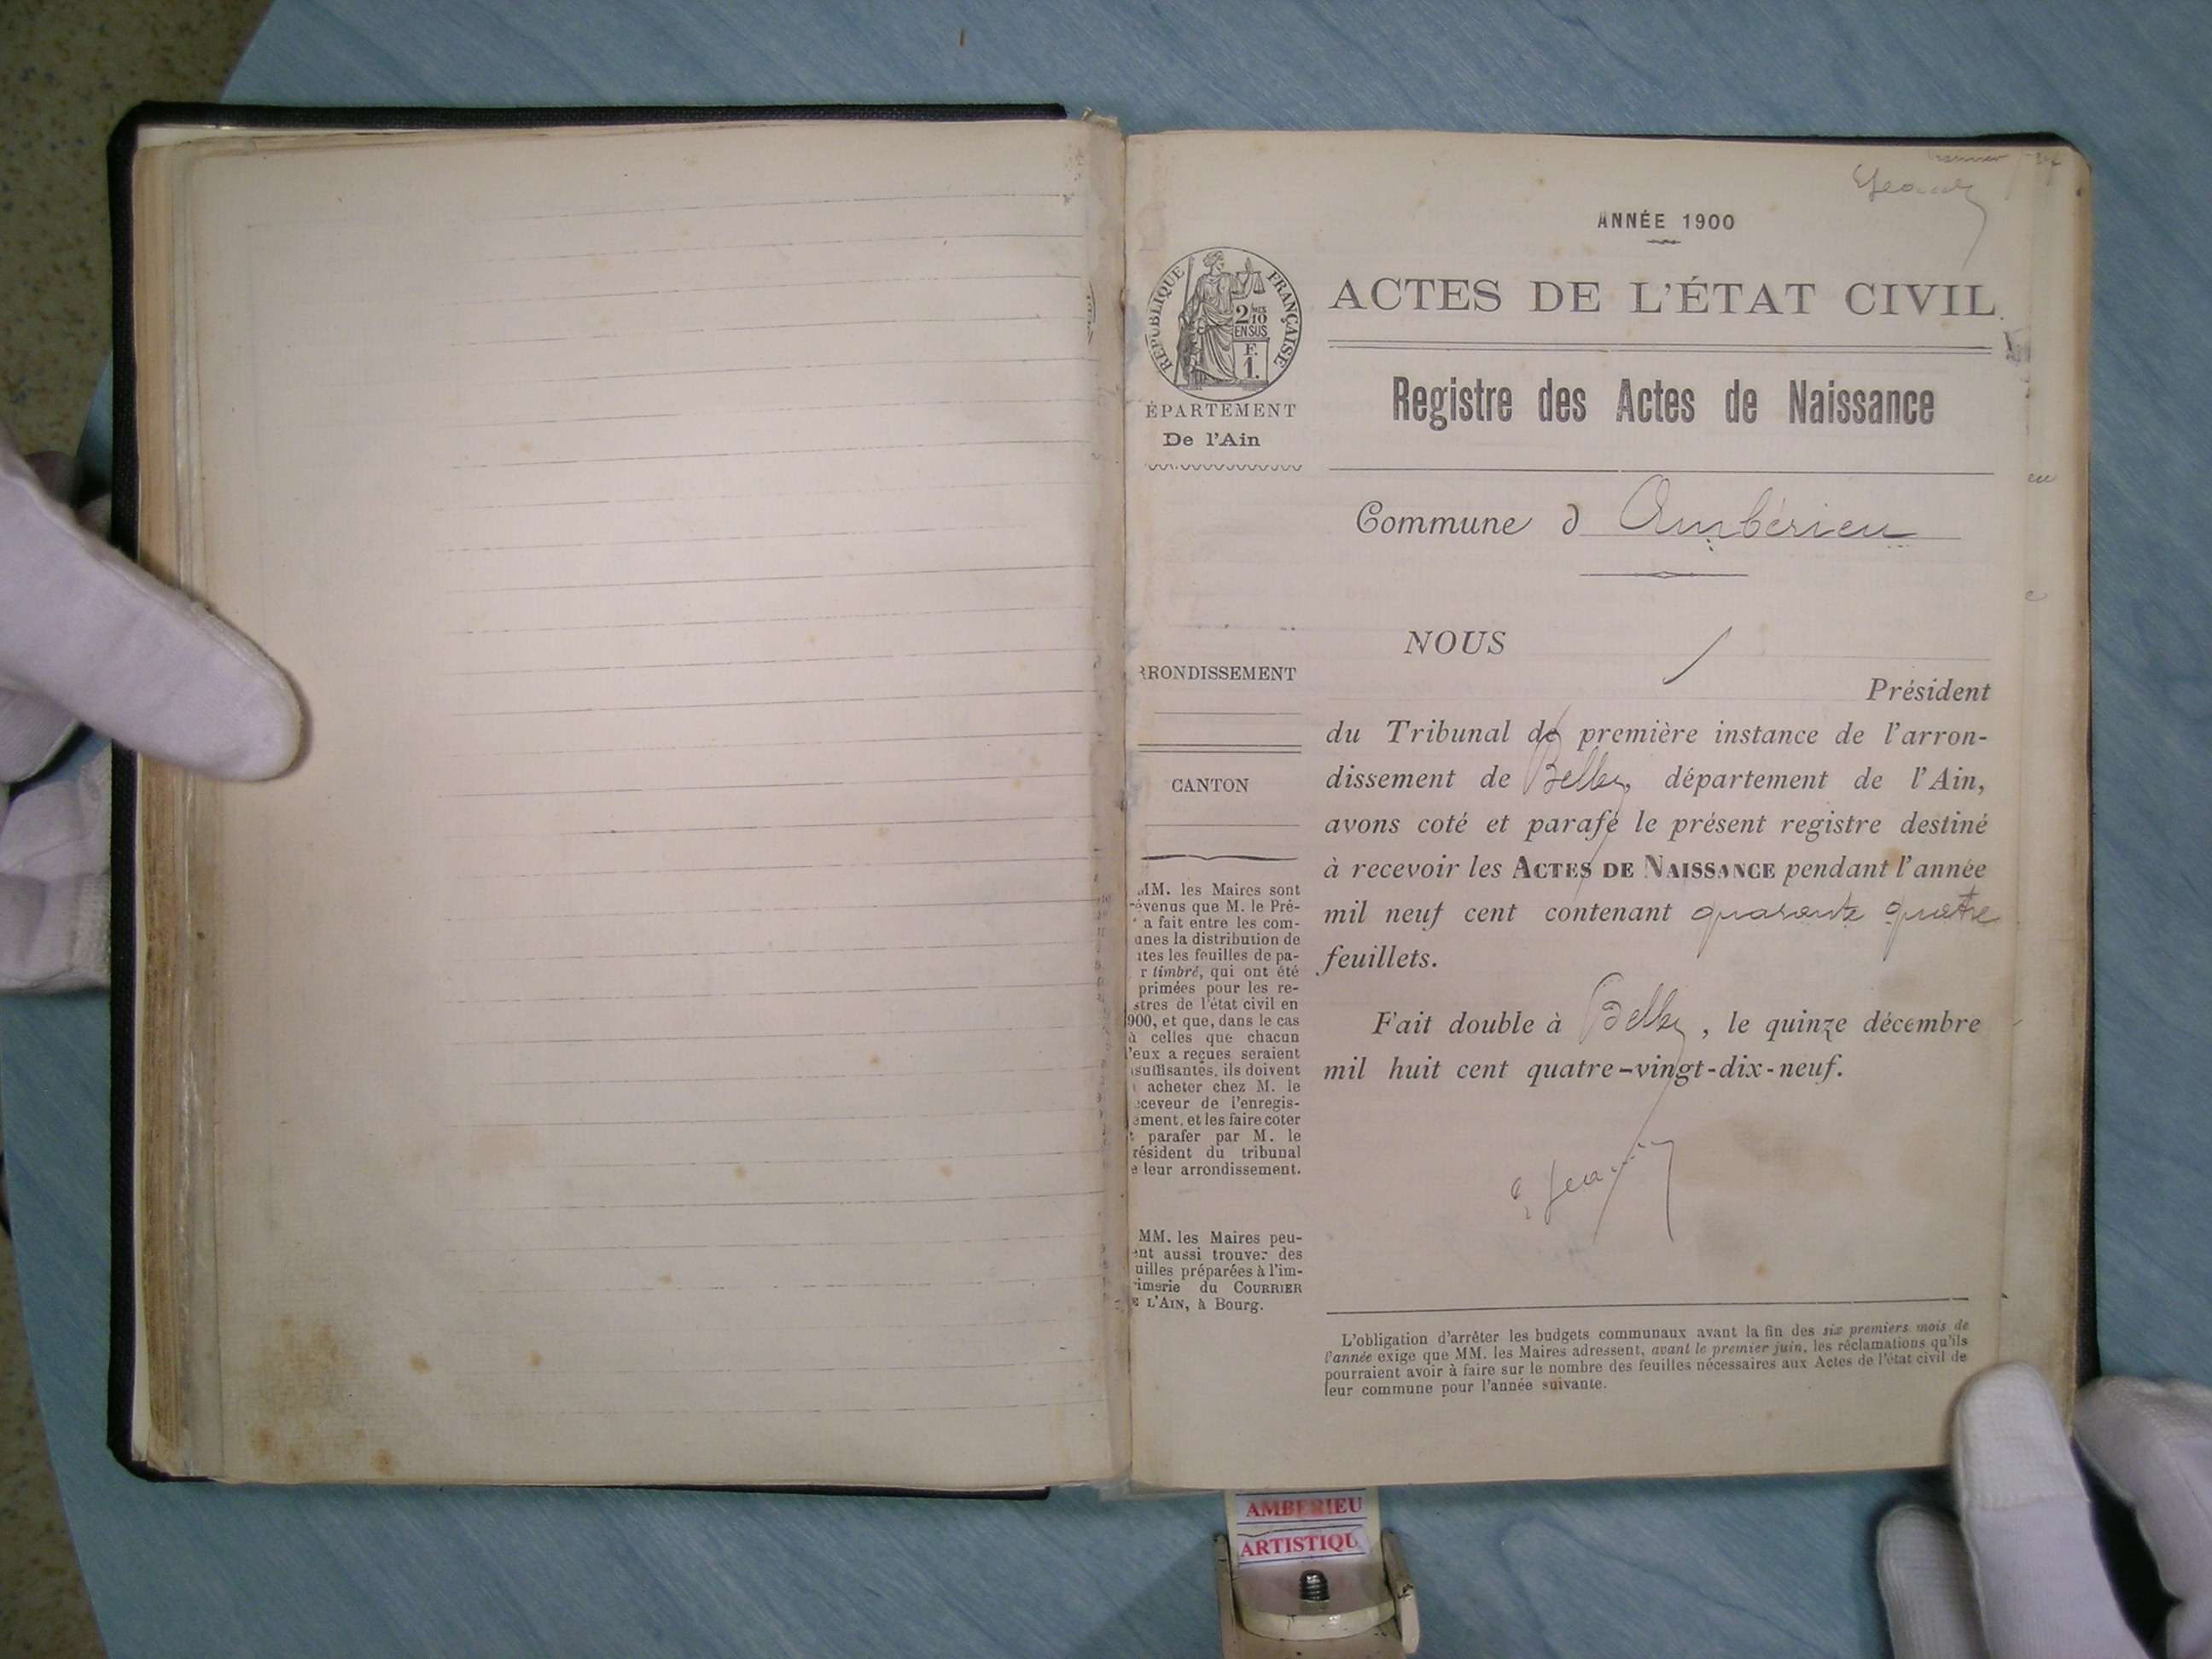 ANNÉE 1900
ACTES DE L'ÉTAT CIVIL
Registre des Actes de Naissance
Commune d Ambérieu
NOUS
Président
du Tribunal de première instance de l'arron-
dissement de Belley, département de l'Ain,
avons coté et parafé le présent registre destiné
à recevoir les ACTES DE NAISSANCE pendant l'année
mil neuf cent contenant quarante quatre
feuillets.
Fait double à Belley, le quinze décembre
mil huit cent quatre-vingt-dix-neuf.
L'obligation d'arrêter les budgets communaux avant la fin des six premiers mois de
l'année exige que MM. les Maires adressent, avant le premier juin, les réclamations qu'ils
pourraient avoir à faire sur le nombre des feuilles nécessaires aux Actes de l'état civil de
leur commune pour l'année suivante.
RÉPUBLIQUE FRANÇAISE
2/10
EN SUS
F.
1.
ÉPARTEMENT
De l'Ain
RRONDISSEMENT
CANTON
MM. les Maires sont
évenus que M. le Pré-
a fait entre les com-
unes la distribution de
utes les feuilles de pa-
r timbré, qui ont été
primées pour les re-
stres de l'état civil en
900, et que, dans le cas
ù celles que chacun
'eux a reçues seraient
suffisantes, ils doivent
acheter chez M. le
eceveur de l'enregis-
ement, et les faire coter
t parafer par M. le
résident du tribunal
e leur arrondissement.
MM. les Maires peu-
ent aussi trouver des
uilles préparées à l'im-
imerie du COURRIER
E L'AIN, à Bourg.
AMBERIEU
ARTISTIQU